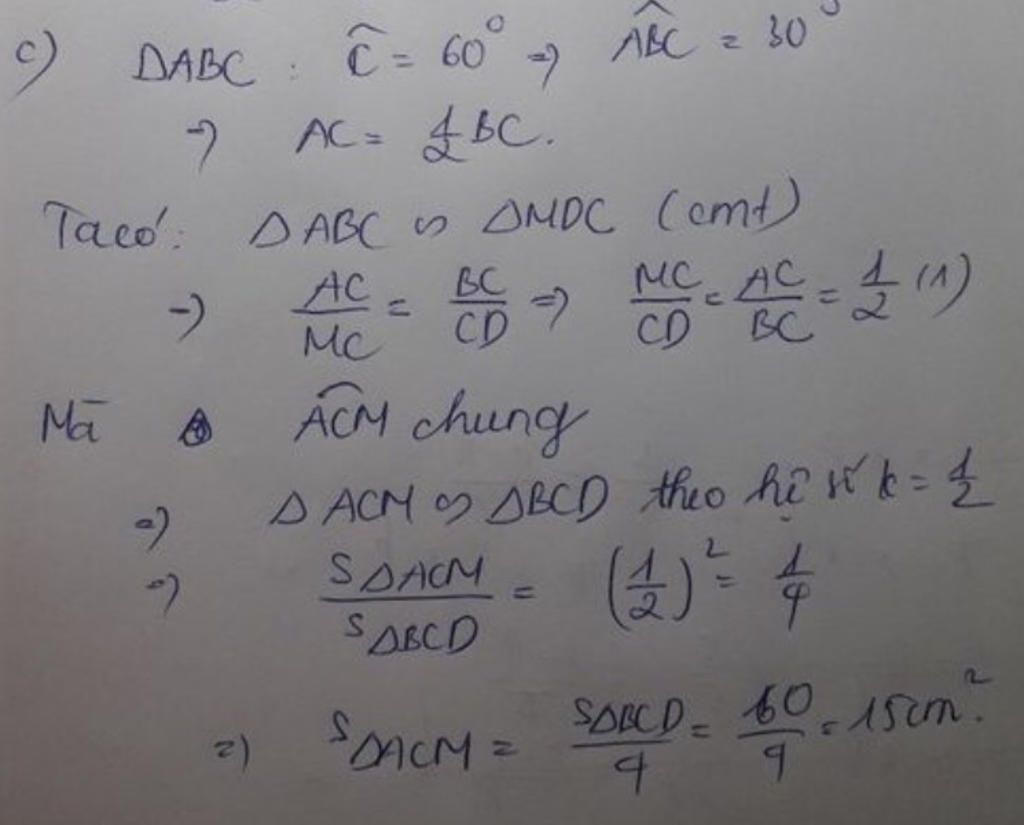 c) ΔABC : Ĉ = 60° => ABC = 30°
=> AC = 1/2 BC.
Ta có: ΔABC ∽ ΔMDC (cmt)
=> AC/MC = BC/CD => MC/CD = AC/BC = 1/2 (1)
Mà ACM chung
=> ΔACM ∽ ΔBCD theo hệ số k = 1/2
=> SΔACM/SΔBCD = (1/2)² = 1/4
=> SΔACM = SΔBCD/4 = 60/4 = 15cm².